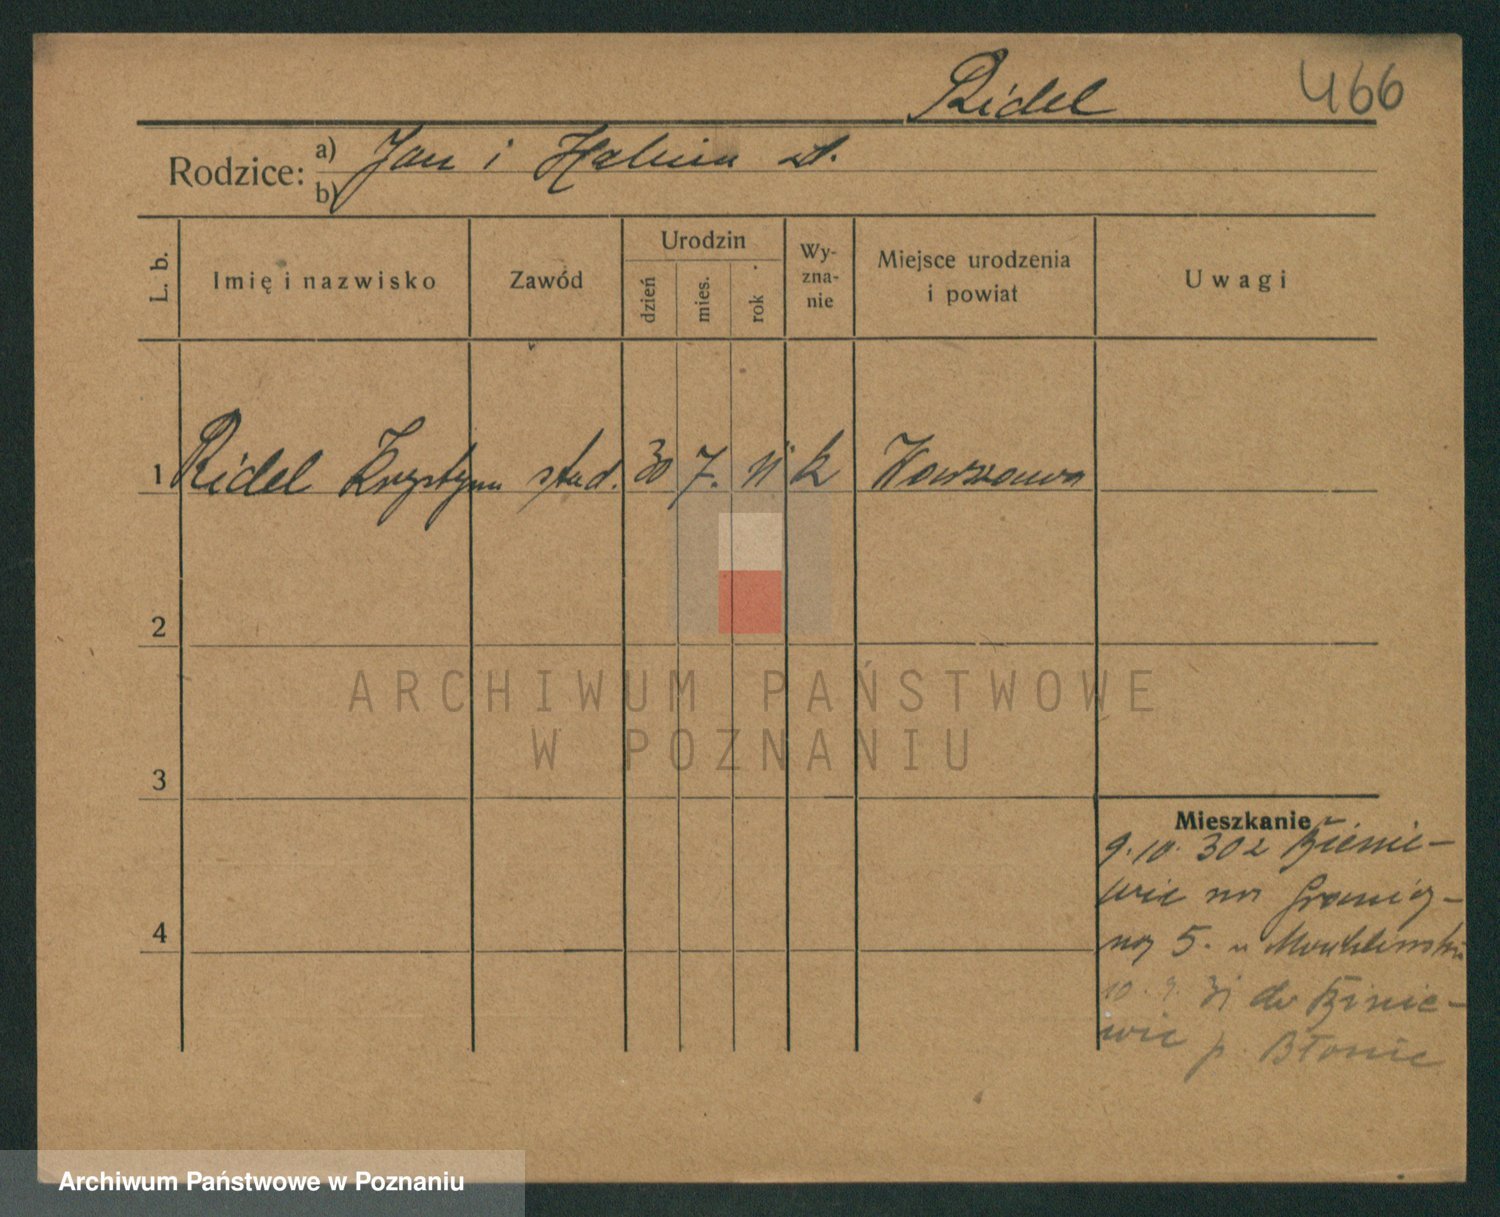 Ridel 466
Rodzice: a) Jan i Halina
b)
L. b. Imię i nazwisko Zawód Urodzin dzień mies. rok Wy-zna-nie Miejsce urodzenia i powiat Uwagi
1 Ridel Krystyna stud. 30 7. 11 k Warszawa
2
ARCHIWUM PAŃSTWOWE
W POZNANIU
3
Mieszkanie
9. 10. 30 z Bienie-
wic na Granicz-
ną 5. u
10. 9. 31 do Binie-
wic p. Błonie
4
Archiwum Państwowe w Poznaniu